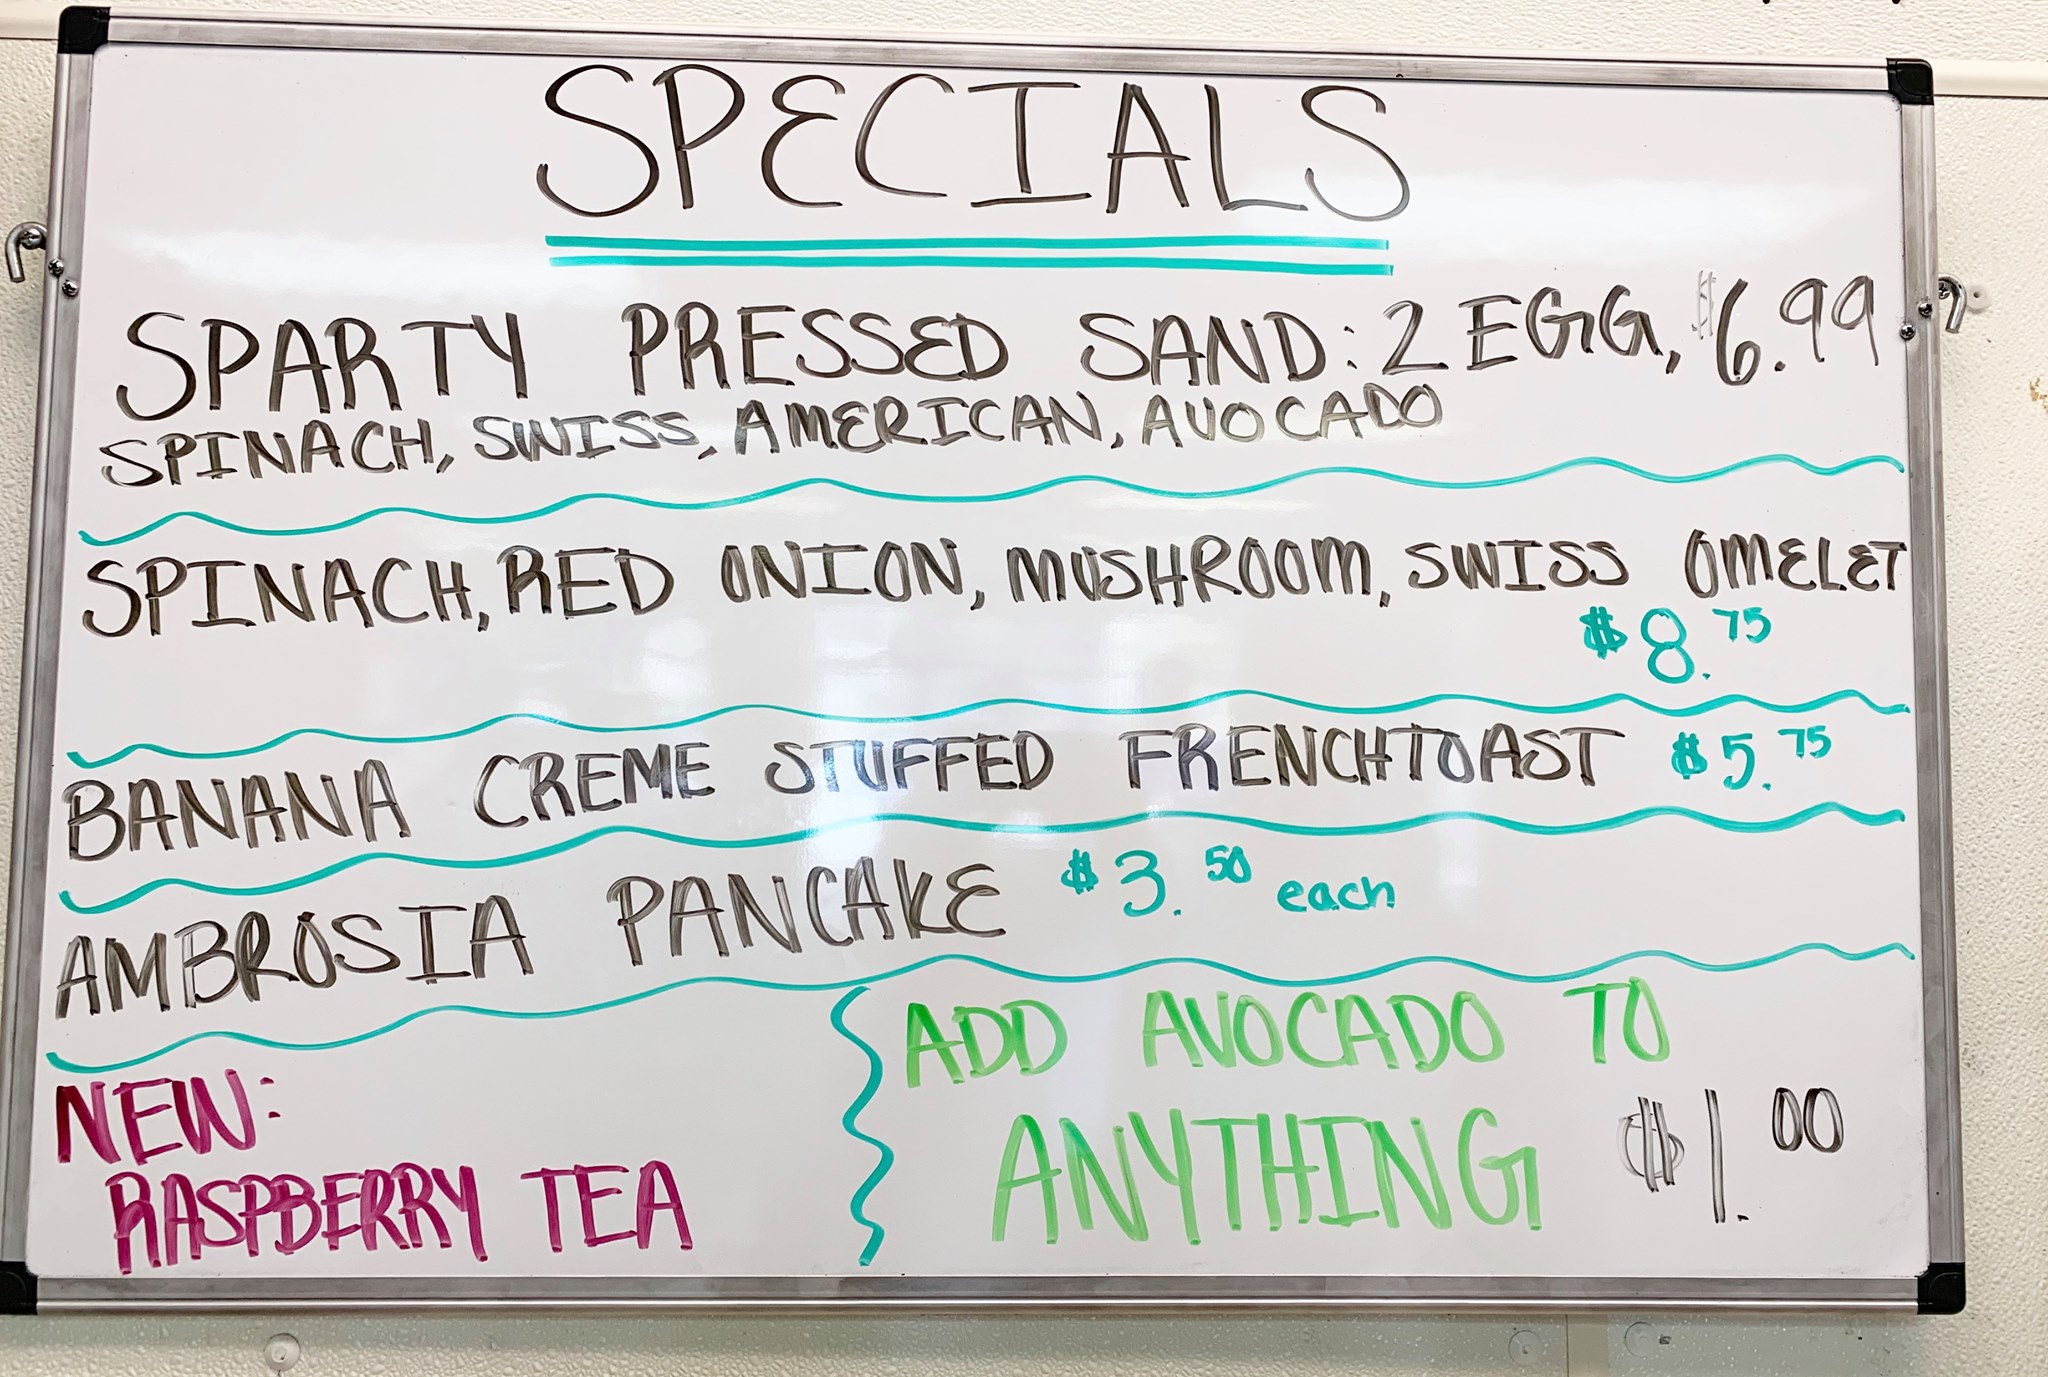 SPECIALS
SPARTY PRESSED SAND: 2 EGG, $6.99
SPINACH, SWISS, AMERICAN, AVOCADO
SPINACH, RED ONION, MUSHROOM, SWISS OMELET
$8.75
BANANA CREME STUFFED FRENCHTOAST $5.75
AMBROSIA PANCAKE $3.50 each
NEW:
RASPBERRY TEA
ADD AVOCADO TO
ANYTHING $1.00